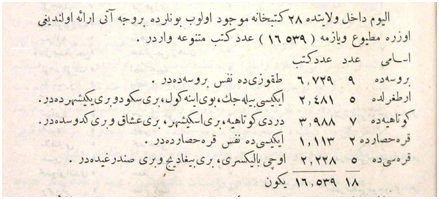 اليوم داخل ولايتده ٢٨ كتبخانه موجود اولوب بونلرده بروجه آتى ارائه اولنديغى
اوزره مطبوع ويازمه ( ١٦٥٣٩ ) عدد كتب متنوعه واردر .
اسامى عدد عددكتب
بروسه ده ٩ ٦,٧٢٩ طقوزى ده نفس بروسه ده در .
ارطغرلده ٥ ٢,٤٨١ ايكيسى بيله جك ، بوى اينه كول ، برى سكود وبرى يكيشهرده در .
كوتاهيه ده ٧ ٣,٩٨٨ دردى كوتاهيه ، برى اسكيشهر ، برى عشاق وبرى كدوسده در .
قره حصارده ٢ ١,١١٣ ايكيسى ده نفس قره حصارده در .
قره سى ده ٥ ٢,٢٢٨ اوچى باليكسرى ، برى بيغاديچ وبرى صندرغيده در .
١٨ ١٦,٥٣٩ يكون